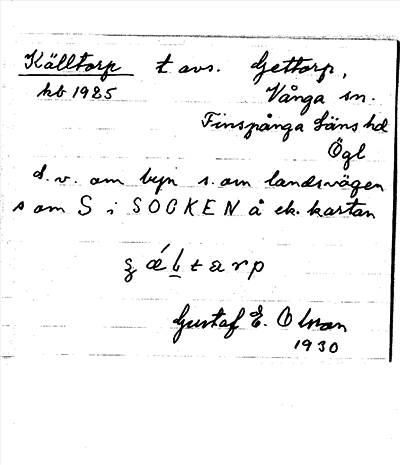 Källtorp t. avs. Gettorp,
kb 1925 Vånga sn.
Finspånga läns hd
Ögl
d. v. om byn s. om landsvägen
som S i SOCKEN å ek. kartan
Gustaf E. Olsson
1930